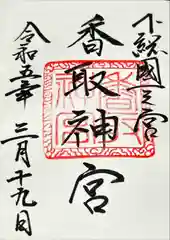 下総國三宮
香取神宮
令和五年
三月十九日